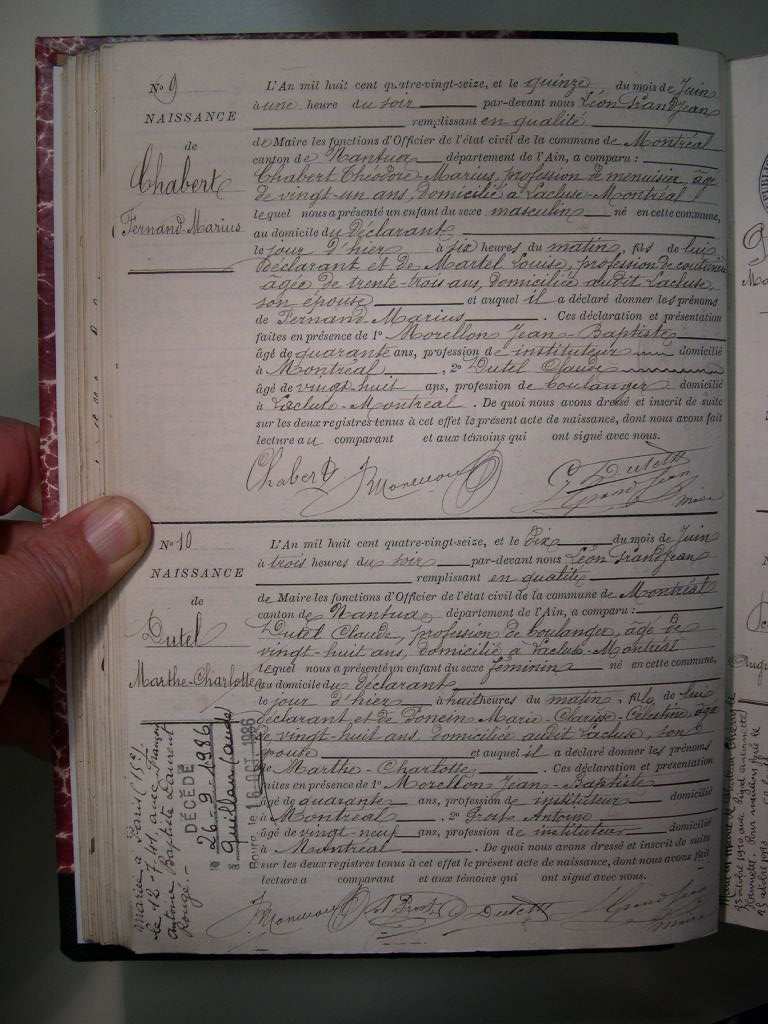 No 9
NAISSANCE
de
Chabert
Fernand Marius
L'An mil huit cent quatre-vingt-seize, et le quinze du mois de Juin
à une heure du soir par-devant nous Léon Grandjean
remplissant en qualité
de Maire les fonctions d'Officier de l'état civil de la commune de Montréal
canton de Nantua département de l'Ain, a comparu :
Chabert Théodore Marius, profession de menuisier, âgé
de vingt-un ans, domicilié à Lacluse-Montréal
lequel nous a présenté un enfant du sexe masculin né en cette commune,
au domicile du déclarant
le jour d'hier à six heures du matin, fils de lui
déclarant et de Martel Louise, profession de
âgée de trente-trois ans, domiciliée audit Lacluse,
son épouse et auquel il a déclaré donner les prénoms
de Fernand Marius . Ces déclaration et présentation
faites en présence de 1° Morellon Jean-Baptiste
âgé de quarante ans, profession de instituteur domicilié
à Montréal , 2° Dutel Claude
âgé de vingt-huit ans, profession de boulanger domicilié
à Lacluse-Montréal . De quoi nous avons dressé et inscrit de suite
sur les deux registres tenus à cet effet le présent acte de naissance, dont nous avons fait
lecture au comparant et aux témoins qui ont signé avec nous.
Chabert Dutel
Grandjean
maire
No 10
NAISSANCE
de
Dutel
Marthe-Charlotte
L'An mil huit cent quatre-vingt-seize, et le Dix du mois de Juin
à trois heures du soir par-devant nous Léon Grandjean
remplissant en qualité
de Maire les fonctions d'Officier de l'état civil de la commune de Montréal
canton de Nantua département de l'Ain, a comparu :
Dutel Claude, profession de boulanger, âgé de
vingt-huit ans, domicilié à Lacluse-Montréal
lequel nous a présenté un enfant du sexe féminin né en cette commune,
au domicile du déclarant
le jour d'hier à huit heures du matin, fille de lui
déclarant et de Poncin Marie-Clarisse-Célestine, âgée
de vingt-huit ans domiciliée audit Lacluse, son
épouse et auquel il a déclaré donner les prénoms
de Marthe-Charlotte . Ces déclaration et présentation
faites en présence de 1° Morellon Jean-Baptiste
âgé de quarante ans, profession de instituteur domicilié
à Montréal , 2° Prost Antoine
âgé de vingt-neuf ans, profession de instituteur domicilié
à Montréal . De quoi nous avons dressé et inscrit de suite
sur les deux registres tenus à cet effet le présent acte de naissance, dont nous avons fait
lecture a comparant et aux témoins qui ont signé avec nous.
A Prost Dutel Grandjean
maire
Mariée à Paris (15e)
le 12-7 avec François
Antoine Baptiste Laurent
Rouge.-
DÉCÉDÉ
le 26-9-1986
à Guillan
Bourg, le 16 OCT. 1986